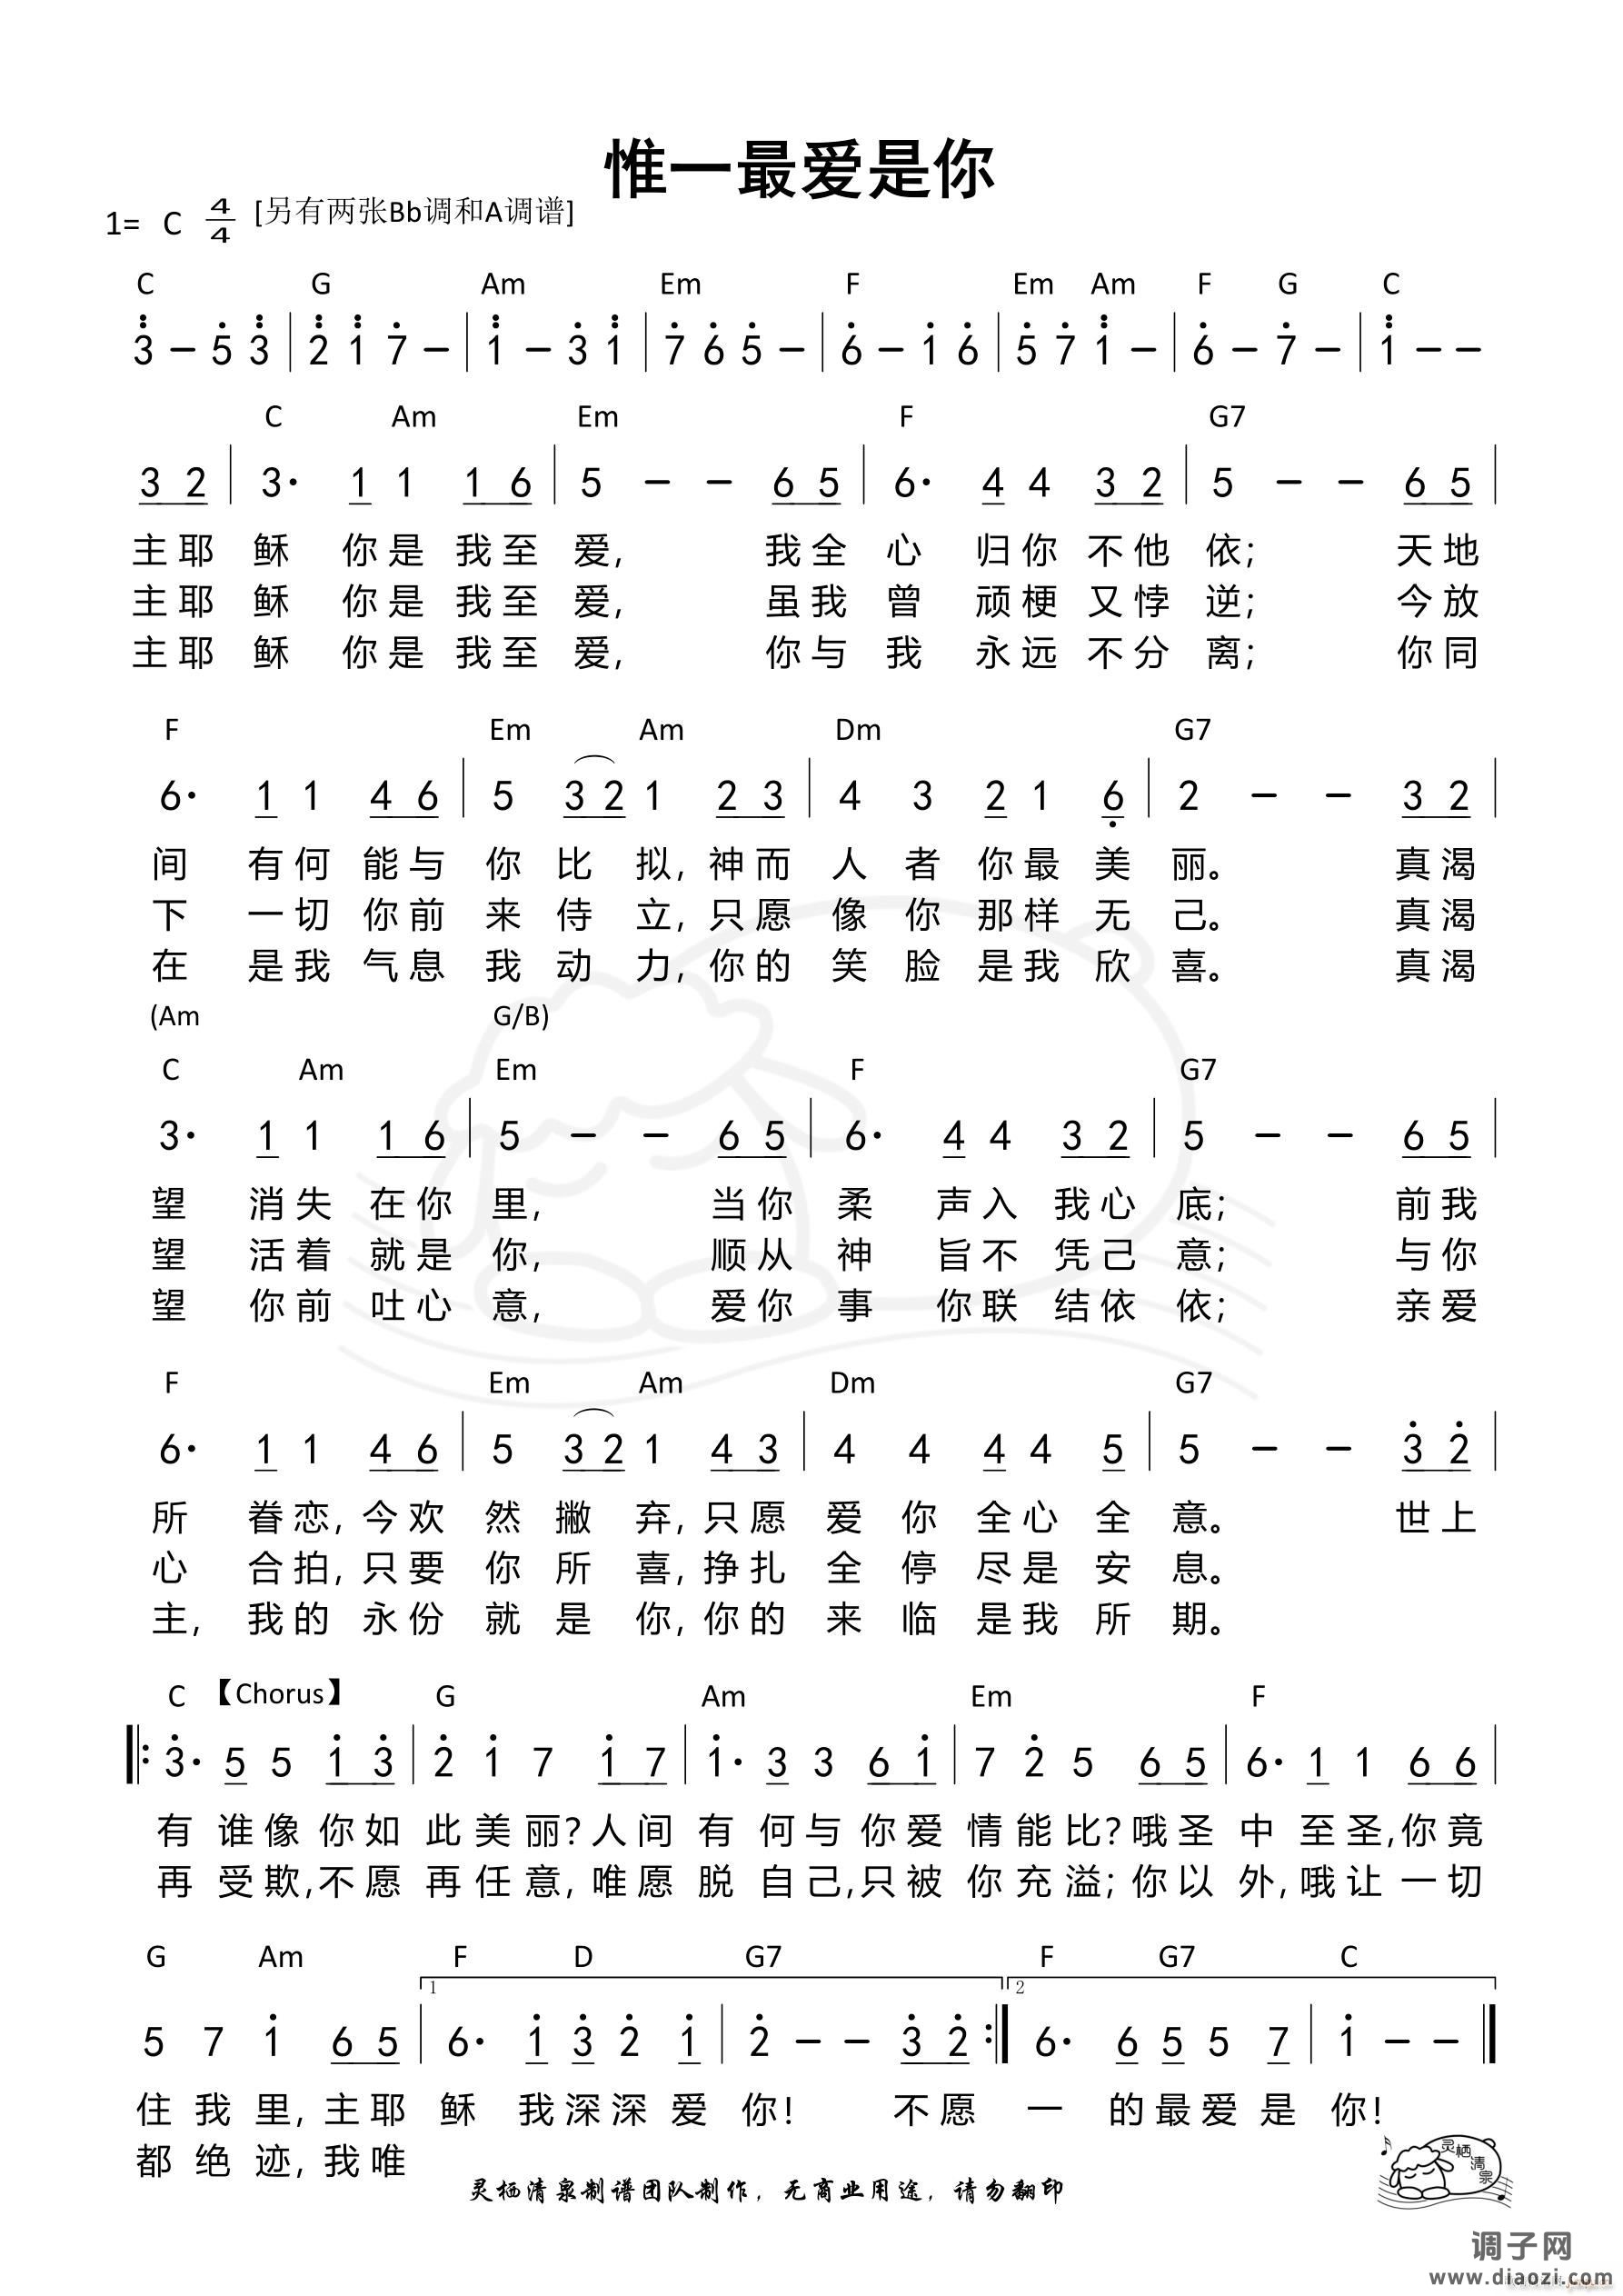 惟一最爱是你
1= C 4/4 [另有两张Bb调和A调谱]
C G Am Em F Em Am F G C
3 – 5 3 | 2 1 7 – | 1 – 3 1 | 7 6 5 – | 6 – 1 6 | 5 7 1 – | 6 – 7 – | 1 – –
C Am Em F G7
3 2 | 3· 1 1 1 6 | 5 – – 6 5 | 6· 4 4 3 2 | 5 – – 6 5 |
主耶 稣 你是 我至 爱, 我全 心 归你 不他 依; 天地
主耶 稣 你是 我至 爱, 虽我 曾 顽梗 又悖 逆; 今放
主耶 稣 你是 我至 爱, 你与 我 永远 不分 离; 你同
F Em Am Dm G7
6· 1 1 4 6 | 5 3 2 1 2 3 | 4 3 2 1 6 | 2 – – 3 2 |
间 有何 能与 你 比 拟, 神而 人 者 你最 美 丽。 真渴
下 一切 你前 来 侍 立, 只愿 像 你 那样 无 己。 真渴
在 是我 气息 我 动 力, 你的 笑 脸 是我 欣 喜。 真渴
(Am G/B)
C Am Em F G7
3· 1 1 1 6 | 5 – – 6 5 | 6· 4 4 3 2 | 5 – – 6 5 |
望 消失 在你 里, 当你 柔 声入 我心 底; 前我
望 活着 就是 你, 顺从 神 旨不 凭己 意; 与你
望 你前 吐心 意, 爱你 事 你联 结依 依; 亲爱
F Em Am Dm G7
6· 1 1 4 6 | 5 3 2 1 4 3 | 4 4 4 4 5 | 5 – – 3 2 |
所 眷恋, 今欢 然 撇 弃, 只愿 爱 你 全心 全 意。 世上
心 合拍, 只要 你 所 喜, 挣扎 全 停 尽是 安 息。
主, 我的 永份 就 是 你, 你的 来 临 是我 所 期。
C 【Chorus】 G Am Em F
3· 5 5 1 3 | 2 1 7 1 7 | 1· 3 3 6 1 | 7 2 5 6 5 | 6· 1 1 6 6 |
有 谁像 你如 此美丽? 人间 有 何与 你爱 情能比? 哦圣 中 至圣, 你竟
再 受欺, 不愿 再任意, 唯愿 脱 自己, 只被 你充溢; 你以 外, 哦让 一切
G Am F D G7 F G7 C
1 2
5 7 1 6 5 | 6· 1 3 2 1 | 2 – – 3 2 :| 6· 6 5 5 7 | 1 – – ‖
住我里, 主耶 稣 我深深爱 你! 不愿 一 的最爱是 你!
都绝迹, 我唯
灵栖清泉
灵栖清泉制谱团队制作, 无商业用途, 请勿翻印
调子网
www.diaozi.com